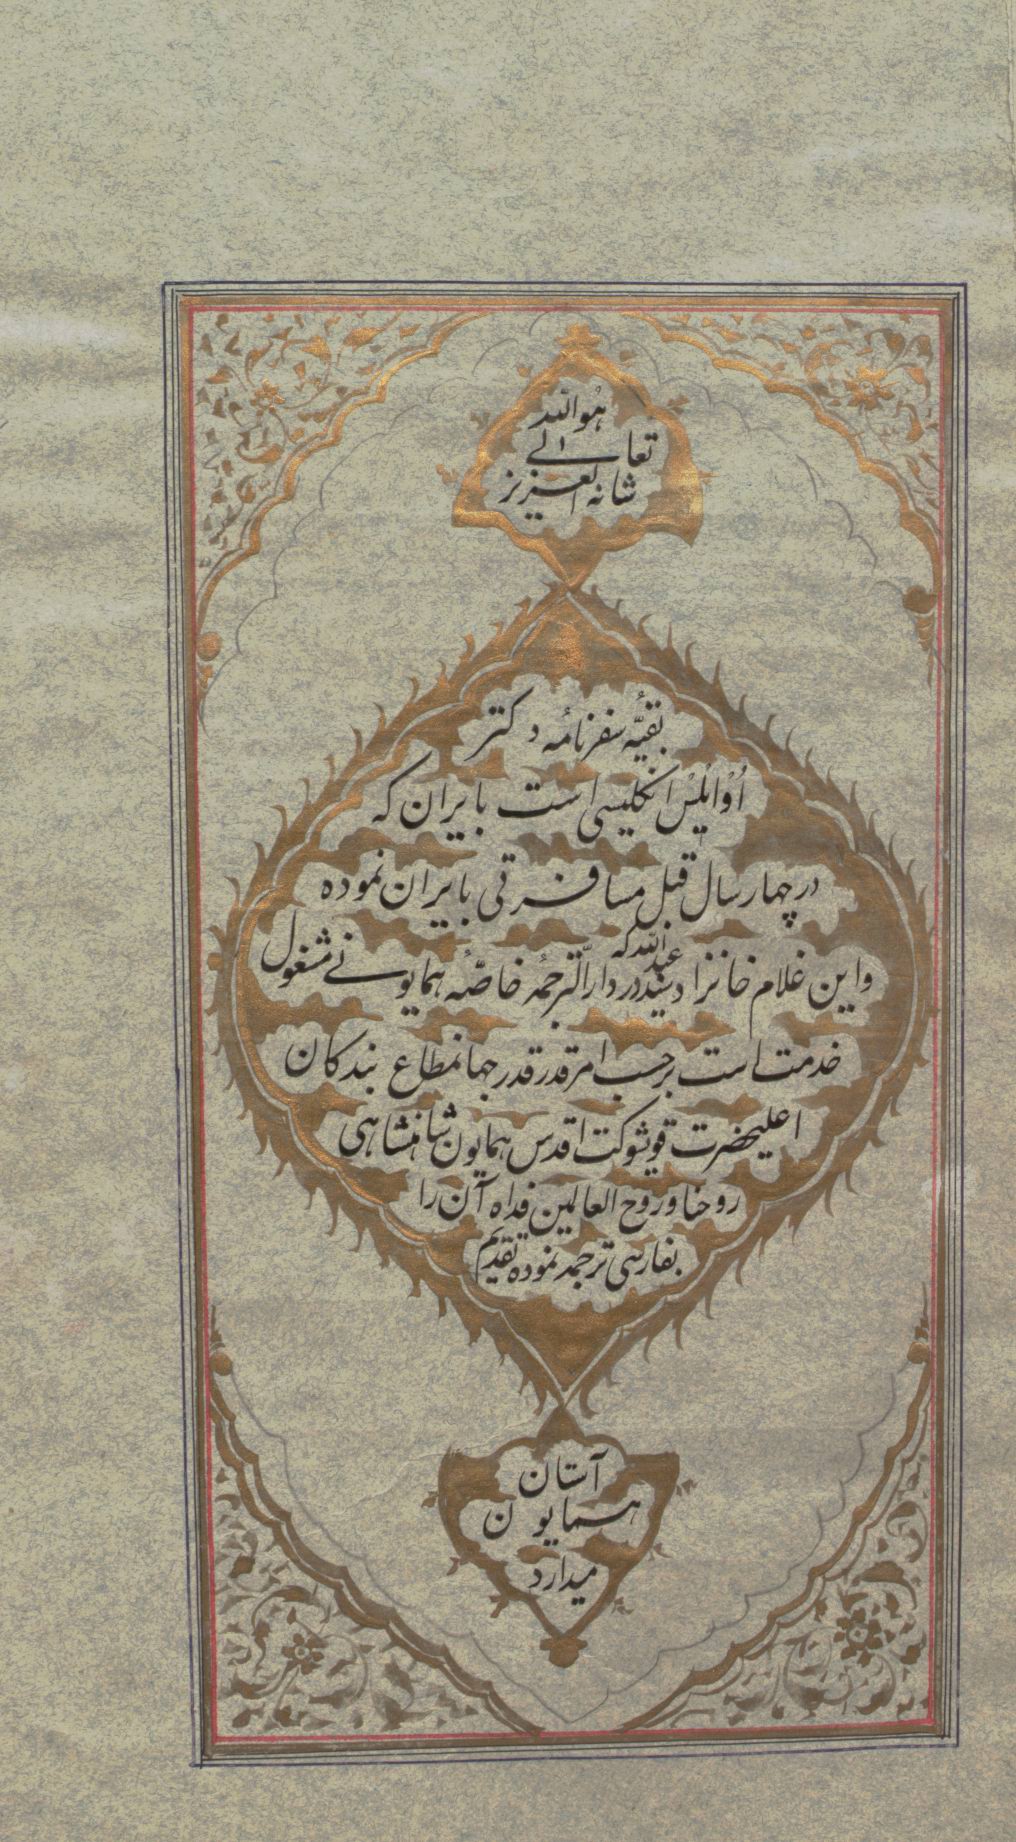 هُوَاللّه
تعالی
شانه العزیز
بقیّه سفرنامهٔ دکتر
اُوْایْلِسْ انکلیسی است بایران که
در چهار سال قبل مسافرتی بایران نموده
و این غلام خانزاد عبدالله که در دارالتّرجمهٔ خاصّهٔ همایونی مشغول
خدمت است برحسب امر قدر قدر جهانمطاع بندکان
اعلیحضرت قویشوکت اقدس همایون شاهنشاهی
روحنا و روح العالمین فداه آن را
بفارسی ترجمه نموده تقدیم
آستان
همایون
میدارد